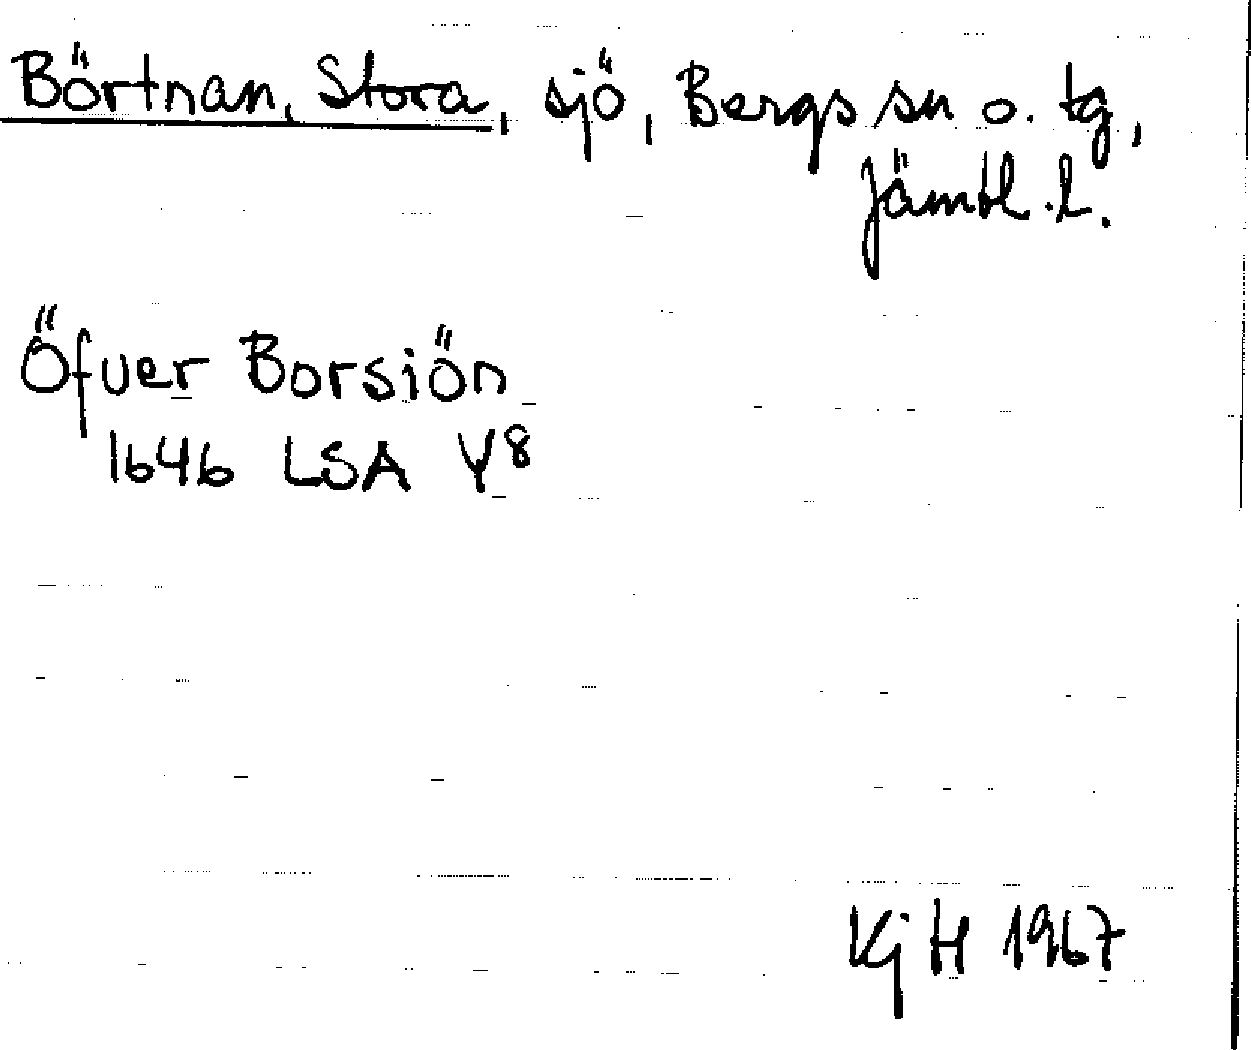 Börtnan, Stora, sjö, Bergs sn o. tg,
Jämtl. l.
Öfuer Borsiön
1646 LSA Y8
Kj H 1967